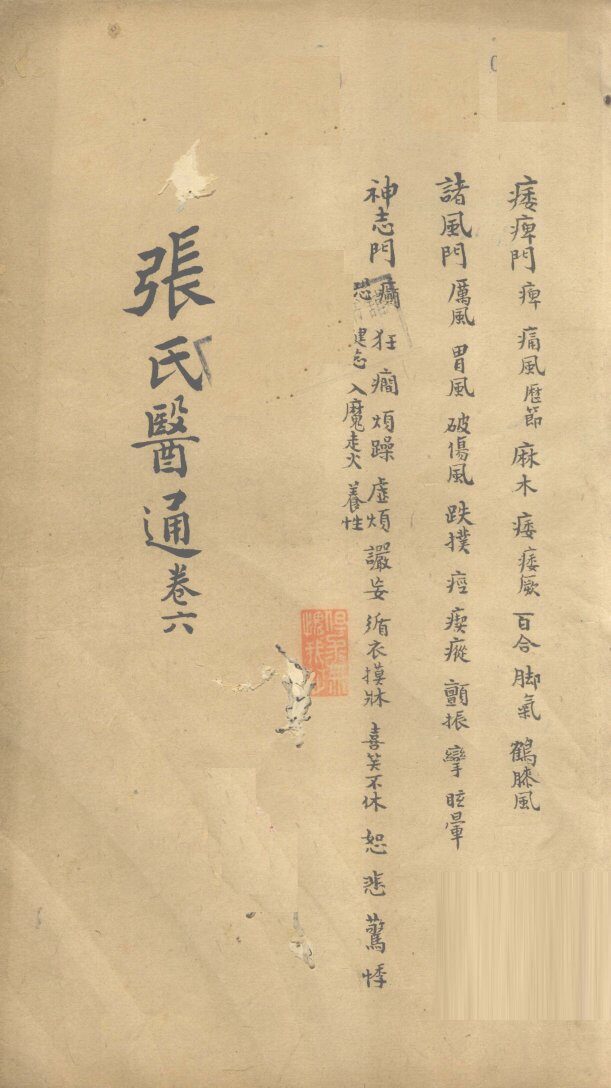 痿痺門 痺 痛風 歷節 麻木 痿 痿厥 百合 脚氣 鶴膝風
諸風門 厲風 胃風 破傷風 跌撲 痙 瘈瘲 顫振 攣 眩暈
神志門 癲 狂 癇 煩躁 虛煩 妄 循衣摸牀 喜笑不休 恕 悲 驚 悸
恐 建忘 入魔走火 養性
張氏醫通卷六